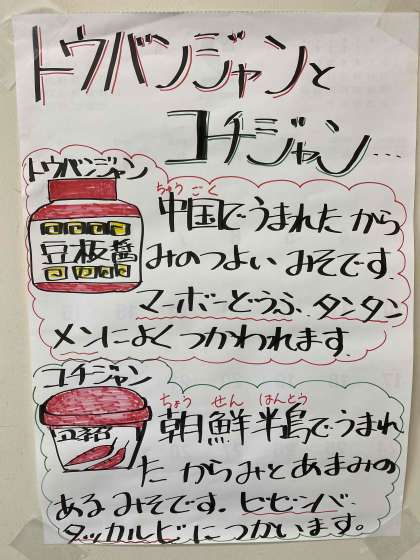 トウバンジャンと
コチジャン...
トウバンジャン
豆板醤
ちゅうごく
中国でうまれたから
みのつよい みそです
マーボーどうふ、タンタン
メンによくつかわれます
コチジャン
ちょう せん はんとう
朝鮮半島でうまれ
た からみとあまみの
あるみそです。ビビンバ、
タッカルビにつかいます。